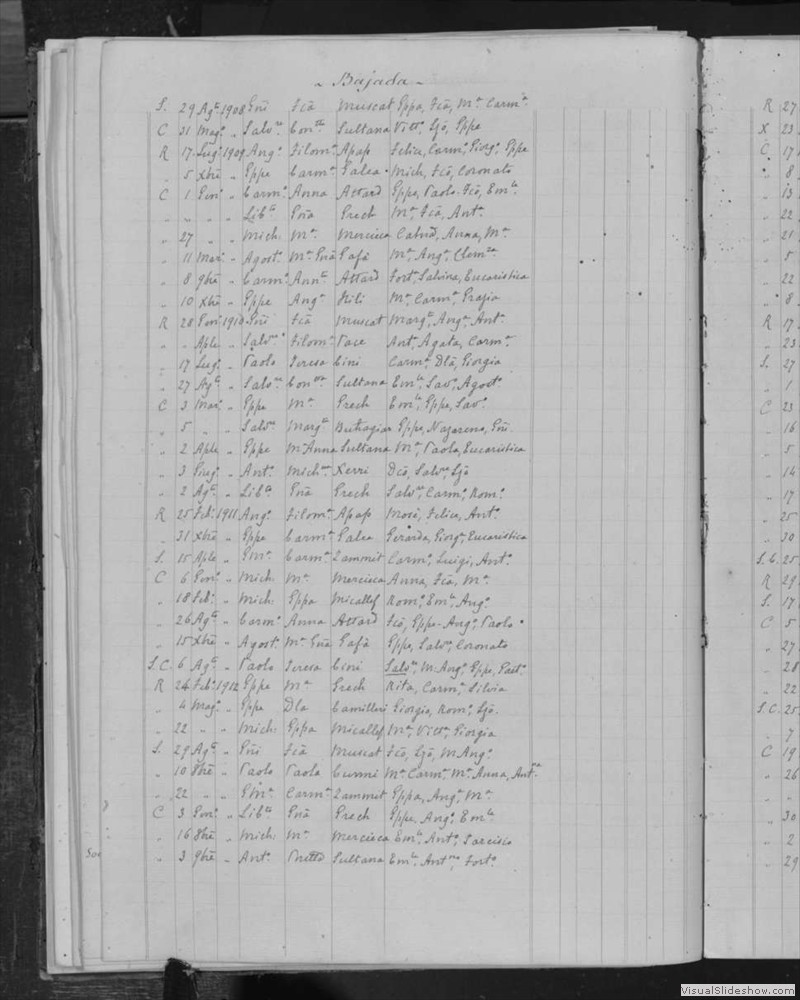 - Bajada -
S. 29 Agto 1908 Gni Fca Muscat Gppa, Fca, Ma Carma
C 31 Mago " Salvre Conta Sultana Vitta, Ljo, Gppe
R 17 Lugo 1909 Ango Filoma Apap Felice, Carmo, Giorgo, Gppe
" 5 Xbre " Gppe Carma Galea Mich, Fco, Coronato
C 1 Geno " Carmo Anna Attard Gppe, Paolo, Fco, Emle
" " " " Libto Gna Grech Ma, Fca, Anta
" 27 " " Mich. Ma Mercieca Anna, Ma
" 11 Maro " Agosto Ma Gna Gafà Ma, Anga
" 8 9bre " Carmo Annta Attard Forta, Salvina, Eucaristica
" 10 Xbre " Gppe Anga Hili Ma, Carma, Grazia
R 28 Geno 1910 Gni Fca Muscat Margta, Anga, Anta
" " Aple " Salvre Filoma Pace Anta, Agata, Carma
" 17 Lugo " Paolo Teresa Cini Carma, Dla, Giorgia
" 27 Agto " Salvre Conta Sultana Emle, Savo, Agosto
C 3 Maro " Gppe Ma Grech Emle, Gppe, Savo
" 5 " " Salvre Margta Buttagiar Gppe, Nazareno, Gni
" 2 Aple " Gppe Ma Anna Sultana Ma, Paola, Eucaristica
" 3 " Anto Micha Xerri Dco, Salvre, Ljo
" 2 Agto " Libto Gna Grech Salvre, Carmo, Romo
R 25 Febo 1911 Ango Filoma Apap Mosè, Felice, Anto
" 31 Xbre " Gppe Carma Galea Gerarda, Giorga, Eucaristica
S. 15 Aple " Carma Zammit Carmo, Luigi, Anto
C 6 Geno " Mich. Ma Mercieca Anna, Fca, Ma
" 18 Febo " Mich Gppa Micallef Romo, Emle, Ango
" 26 Agto " Carmo Anna Attard Fco, Gppe, Ango, Paolo
" 15 Xbre " Agosto Ma Gna Gafà Gppe, Salvre, Coronato
S.C. 6 Agto " Paolo Teresa Cini Salvre, M. Ango, Gppe
R 24 Febo 1912 Gppe Ma Grech Rita, Carma, Silvia
" 4 Mago " Gppe Dla Camilleri Giorgia, Roma, Ljo
" 22 " " Mich. Gppa Micallef Ma, Vitta, Giorgia
S. 29 Agto " Gni Fca Muscat Fco, Ljo, M. Ango
" 10 8bre " Paolo Paola Curmi Ma Carma, Ma Anna
" 22 " " Carma Zammit Gppa, Anga, Ma
C 3 Geno " Libto Gna Grech Gppe, Ango, Emle
" 16 8bre " Mich. Ma Mercieca Emle, Anto, Tarcisio
" 3 9bre " Anto Sultana Emle, Forto
R 27
X 23
C 17
" 8
" 13
" 22
" 21
" 5
" 22
" 8
R 17
" 23
S. 27
" 1
C 23
" 16
" 5
" 14
" 17
" 25
" 30
S.C. 25
R 29
S. 17
C 5
" 27
" 28
" 22
S.C. 25
" 7
C 19
" 26
" "
" 30
" 2
" 29
VisualSlideshow.com